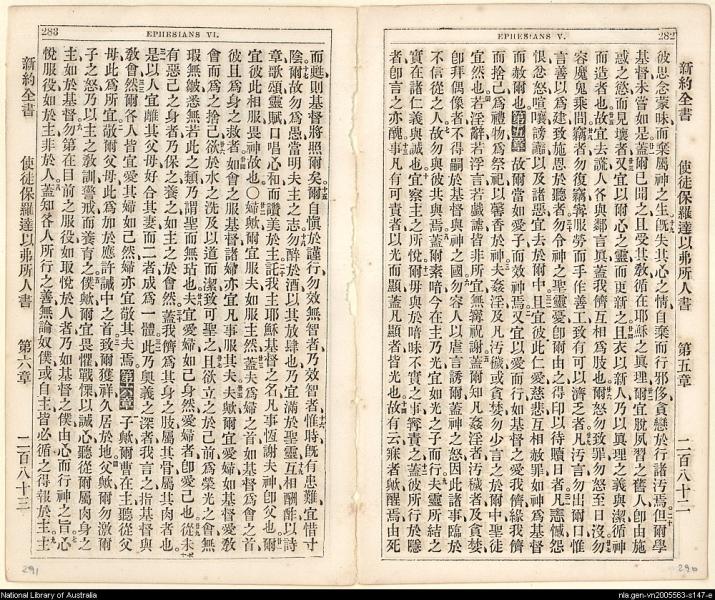 282
EPHESIANS V.
新約全書　使徒保羅達以弗所人書　第五章　二百八十二
彼思念蒙昧而棄屬神之生旣失其心之情自棄而行邪侈貪戀於行諸汚焉但爾學
基督未嘗如是蓋爾已聞之且受其敎循在耶穌之眞理爾宜脫夙習之舊人卽由施
惑之慾而見壞者又宜以爾心之靈而更新之且衣以新人乃以眞理之義與潔循神
而造者也故宜去謊人各與鄰言眞蓋我儕互相爲肢也爾怒勿致罪勿怒至日沒勿
容魔鬼乘間竊者勿復竊寧服勞而手作善工致有可以濟乏者凡汚言勿出爾口惟
言善以爲建致施恩於聽者勿令神之聖靈憂卽爾由之得印以待贖日者凡憾怨
恨忿怒喧嚷謗讟以及諸惡宜去於爾中且宜彼此仁愛慈悲互相赦罪如神爲基督
而赦爾也第五章故爾當如愛子而效神焉又宜以愛而行如基督之愛我儕緣我儕
而捨己爲禮物爲祭祀以馨香於神夫姦淫及凡汚穢或貪婪勿少言之於爾中聖徒
宜然也若淫辭若浮言若戲謔皆非所宜無寧祝謝蓋爾知凡姦淫者汚穢者及貪婪
卽拜偶像者不得嗣於基督與神之國勿容人以虛言誘爾蓋神之怒因此諸事臨於
不信從之人故勿與彼共與焉蓋爾素暗今在主乃光宜如光之子而行夫靈所結之
實在諸仁義與誠也宜察主之所悅爾毋與於暗昧不實之事寧責之蓋彼所行於隱
者卽言之亦醜事凡有可責者以光而顯蓋凡顯者皆光也故有云寐者歟醒焉由死
290
283
EPHESIANS VI.
而甦則基督將照爾矣爾自愼於謹行勿效無智者乃效智者惟時旣有患難宜惜寸
陰爾故勿爲愚當明夫主之志勿醉於酒以其放肆也乃宜滿於聖靈互相酬酢以詩
章歌頌靈賦口唱心和而讚美於主託我主耶穌基督之名凡事恆謝夫神卽父也爾
宜彼此相服畏神故也○婦歟爾宜服夫如服主然蓋夫爲婦之首如基督爲會之首
彼且爲身之救者如會之服基督諸婦亦宜凡事服其夫夫歟爾宜愛婦如基督愛敎
會而爲之捨己欲於水之洗及以道而潔致可聖之且欲立之於己前爲榮光之會無
瑕無皺悉無若此之類乃謂聖而無玷也夫宜愛婦如己身然愛婦者卽愛己也從未
有惡己之身者乃保之養之如主之於會然蓋我儕爲其身之肢屬其骨屬其肉者也
是以人宜離其父母好合其妻而二者成爲一體此乃奧義之深者我言之指基督與
敎會然爾各人皆宜愛其婦如己然婦亦宜敬其夫焉第六章子歟爾曹在主聽從父
母此爲所宜敬爾父母此爲加於應許誡中之首致爾獲祥久居於地父歟爾勿激爾
子之怒乃以主之敎訓警戒而養育之僕歟爾宜畏懼戰慄以誠心聽從爾屬肉身之
主如於基督勿第在目前之服役如取悅於人者乃如基督之僕由心而行神之旨心
悅服役如於主非於人蓋知各人所行之善無論奴僕或自主皆必循之得報於主主
新約全書　使徒保羅達以弗所人書　第六章　二百八十三
291
National Library of Australia
nla.gen-vn2005563-s147-e